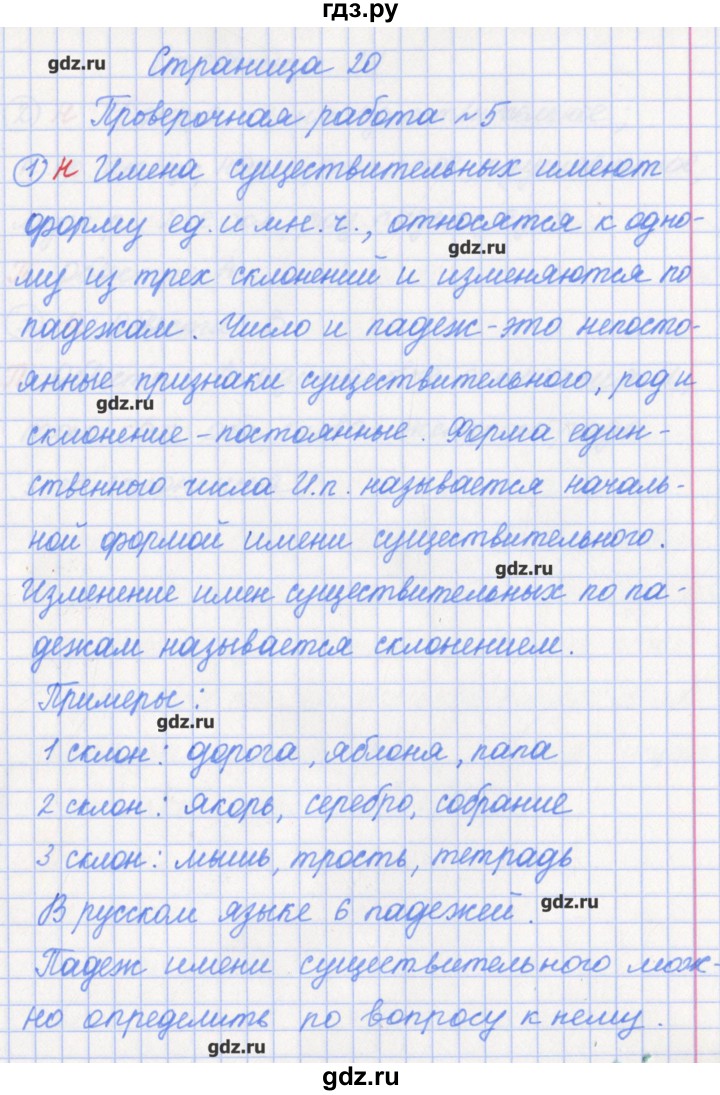 гдз.ру
gdz.ru Страница 20
Проверочная работа №5
1) Н Имена существительных имеют
форму ед. и мн. ч., относятся к одно-
gdz.ru
му из трех склонений и изменяются по
падежам. Число и падеж - это непосто-
янные признаки существительного, род и
gdz.ru
склонение - постоянные. Форма един-
ственного числа И.п. называется началь-
ной формой имени существительного.
gdz.ru
Изменение имен существительных по па-
дежам называется склонением.
Примеры:
gdz.ru
1 склон: дорога, яблоня, папа
2 склон: якорь, серебро, собрание
3 склон: мышь, трость, тетрадь
В русском языке 6 падежей. gdz.ru
Падеж имени существительного мож-
но определить по вопросу к нему.
gdz.ru
gdz.ru